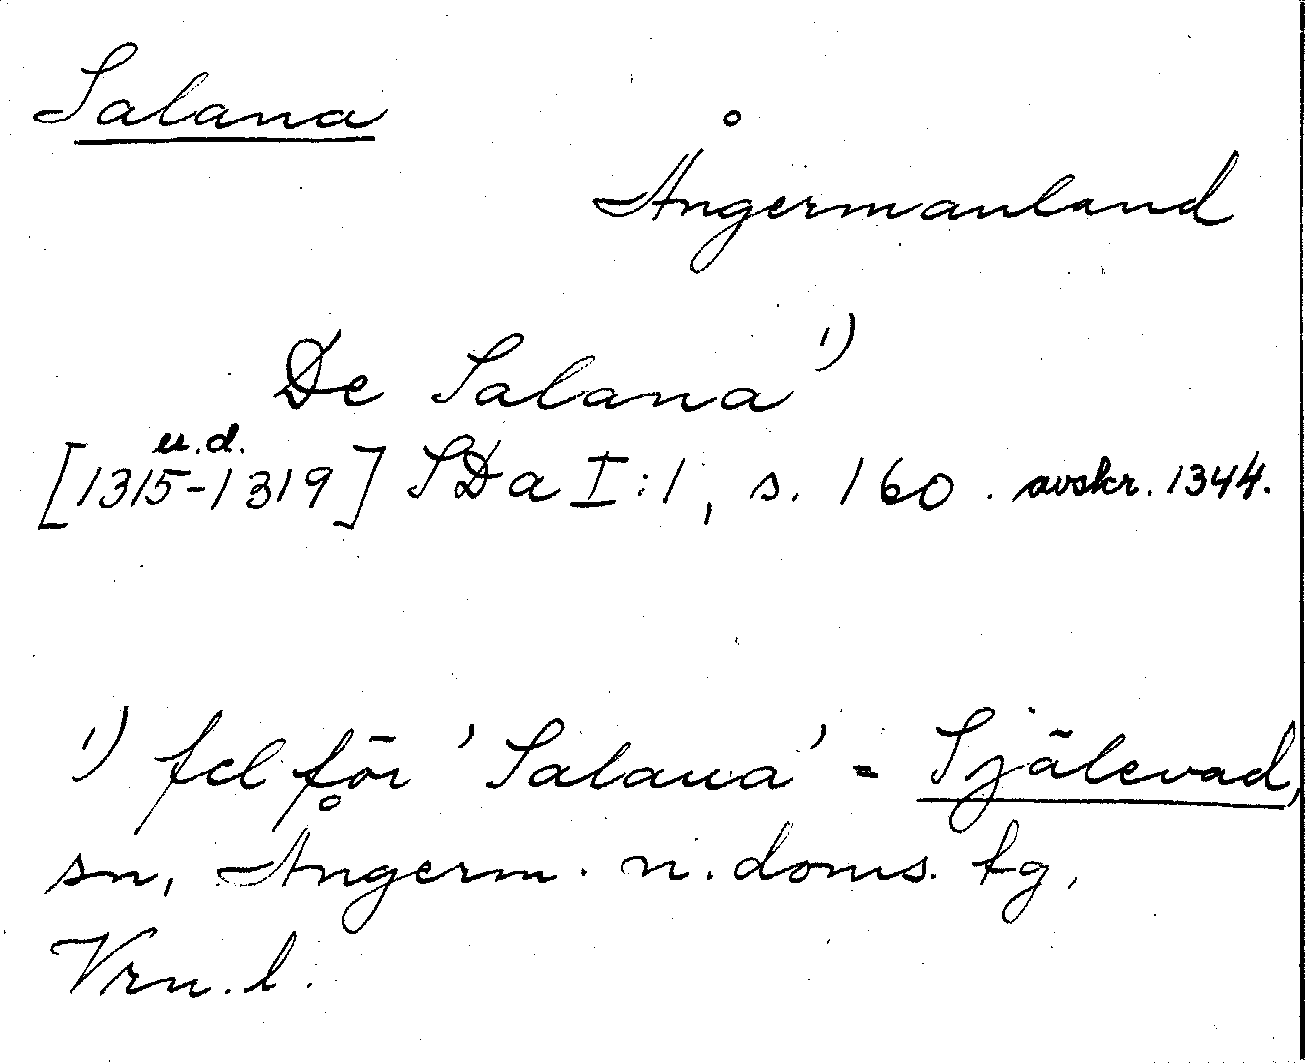 Salana
Ångermanland
De Salana ¹)
u.d.
[1315-1319] SDa I:1, s. 160. avskr. 1344.
¹) fel för 'Salaua' = Själevad,
sn, Ångerm. n. doms. tg,
Vrn. l.